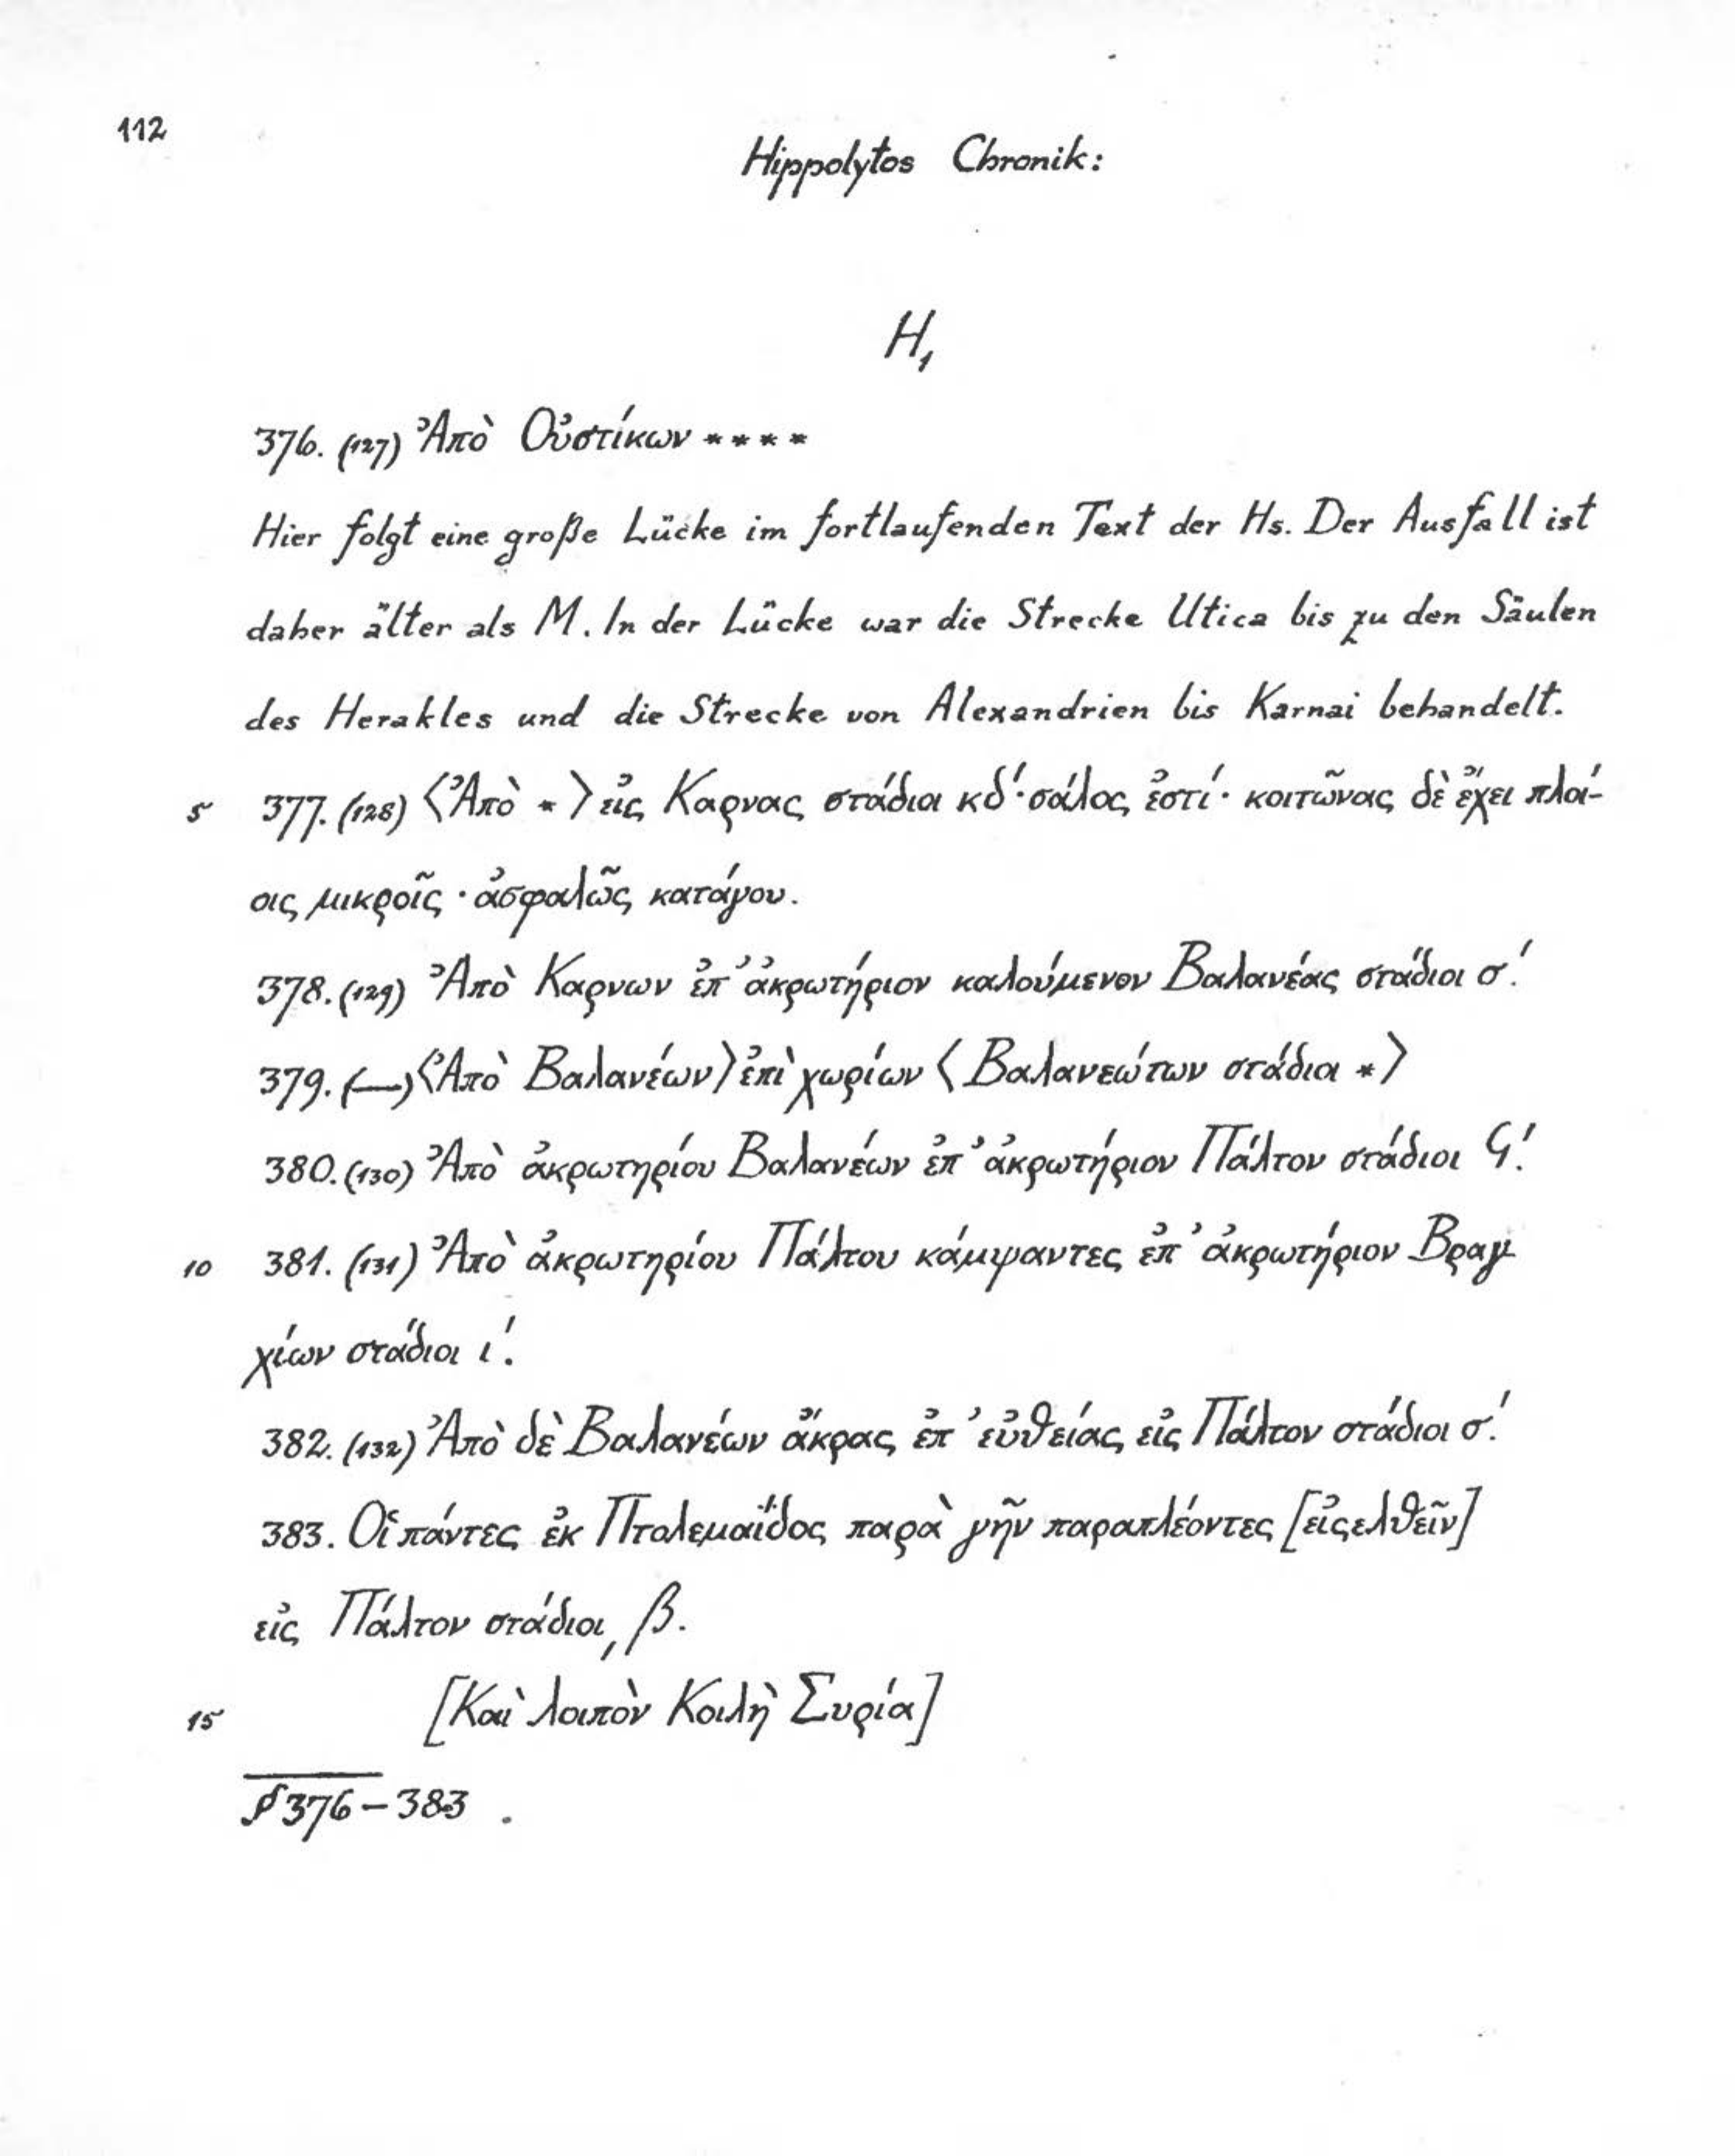 112
Hippolytos Chronik:
H₁
376. (127) Ἀπὸ Οὐστίκων ****
Hier folgt eine große Lücke im fortlaufenden Text der Hs. Der Ausfall ist
daher älter als M. In der Lücke war die Strecke Utica bis zu den Säulen
des Herakles und die Strecke von Alexandrien bis Karnai behandelt.
5 377. (128) ⟨Ἀπὸ *⟩ εἰς Καρνας στάδια κδ´· σάλος ἐστί· κοιτῶνας δὲ ἔχει πλοί-
οις μικροῖς · ἀσφαλῶς κατάγου.
378. (129) Ἀπὸ Καρνων ἐπ᾽ ἀκρωτήριον καλούμενον Βαλανέας στάδιοι σ´.
379. (—) ⟨Ἀπὸ Βαλανέων⟩ ἐπὶ χωρίων ⟨Βαλανεώτων στάδια *⟩
380. (130) Ἀπὸ ἀκρωτηρίου Βαλανέων ἐπ᾽ ἀκρωτήριον Πάλτον στάδιοι ϟ´.
10 381. (131) Ἀπὸ ἀκρωτηρίου Πάλτου κάμψαντες ἐπ᾽ ἀκρωτήριον Βραγ-
χίων στάδιοι ι´.
382. (132) Ἀπὸ δὲ Βαλανέων ἄκρας ἐπ᾽ εὐθείας εἰς Πάλτον στάδιοι σ´.
383. Οἱ πάντες ἐκ Πτολεμαΐδος παρὰ γῆν παραπλέοντες [εἰςελθεῖν]
εἰς Πάλτον στάδιοι ͵β.
15 [Καὶ λοιπὸν Κοιλὴ Συρία]
§ 376 – 383 .